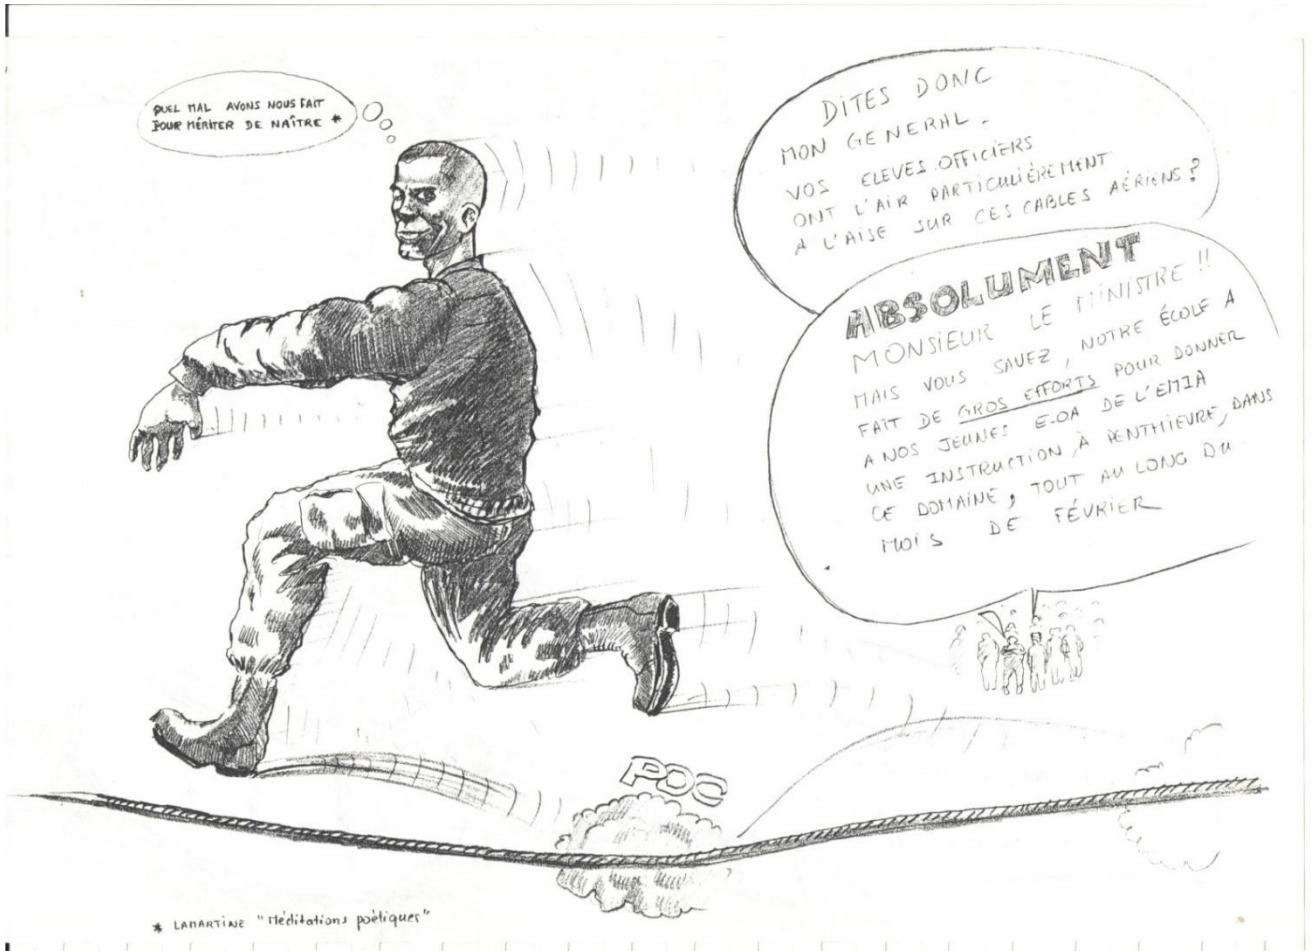 QUEL MAL AVONS NOUS FAIT
POUR MÉRITER DE NAÎTRE *
DITES DONC
MON GENERAL.
VOS ELEVES.OFFICIERS
ONT L'AIR PARTICULIÈREMENT
A L'AISE SUR CES CABLES AÉRIENS?
ABSOLUMENT
MONSIEUR LE MINISTRE !!
MAIS VOUS SAVEZ, NOTRE ÉCOLE A
FAIT DE GROS EFFORTS POUR DONNER
A NOS JEUNES E.OA DE L'EMIA
UNE INSTRUCTION, À PENTHIEVRE, DANS
CE DOMAINE, TOUT AU LONG DU
MOIS DE FÉVRIER
POC
* LAMARTINE "Méditations poètiques"